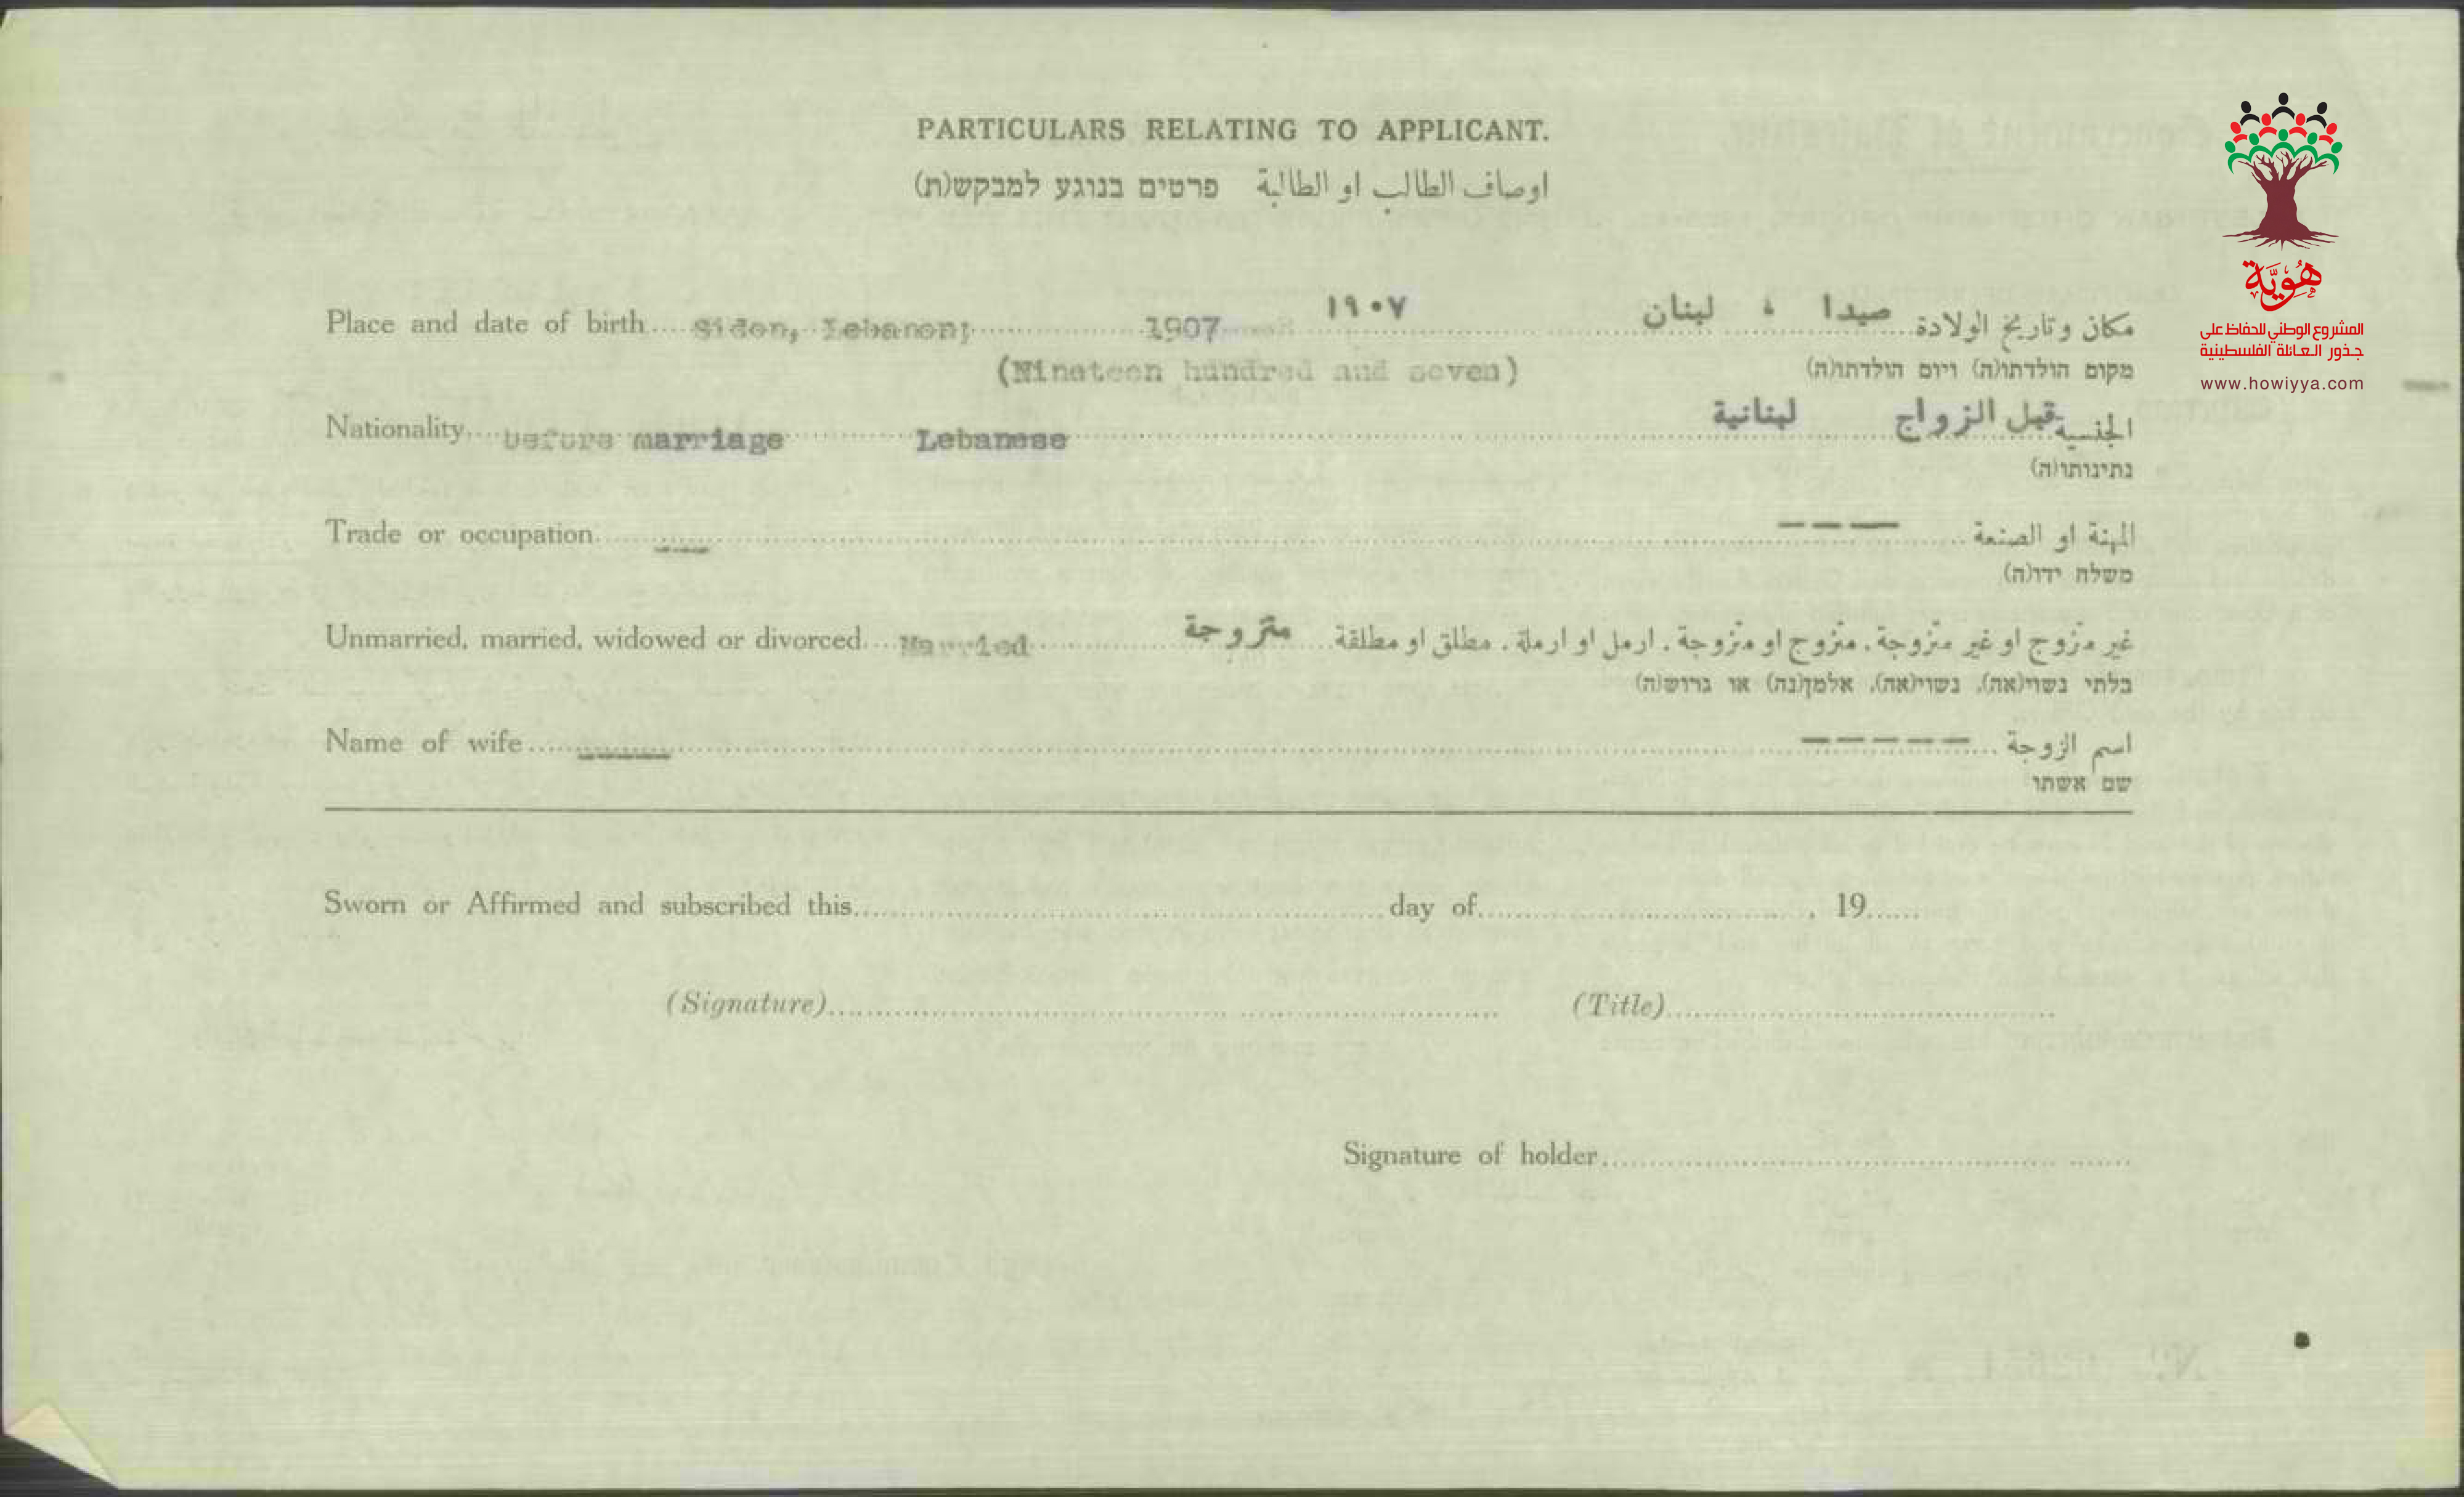 PARTICULARS RELATING TO APPLICANT.
اوصاف الطالب او الطالبة פרטים בנוגע למבקש(ת)
هُوِيَّة
المشروع الوطني للحفاظ على
جذور العائلة الفلسطينية
www.howiyya.com
Place and date of birth Sidon, Lebanon; 1907 ١٩٠٧ مكان وتاريخ الولادة صيدا ، لبنان
(Nineteen hundred and seven) מקום הולדתו(ה) ויום הולדתו(ה)
Nationality before marriage Lebanese الجنسية قبل الزواج لبنانية
נתינותו(ה)
Trade or occupation --- المهنة او الصنعة ----
משלח ידו(ה)
Unmarried, married, widowed or divorced Married غير متزوج او غير متزوجة، متزوج او متزوجة، ارمل او ارملة، مطلق او مطلقة متزوجة
בלתי נשוי(אה), נשוי(אה), אלמן(נה) או גרוש(ה)
Name of wife ----- اسم الزوجة -----
שם אשתו
Sworn or Affirmed and subscribed this day of , 19
(Signature) (Title)
Signature of holder